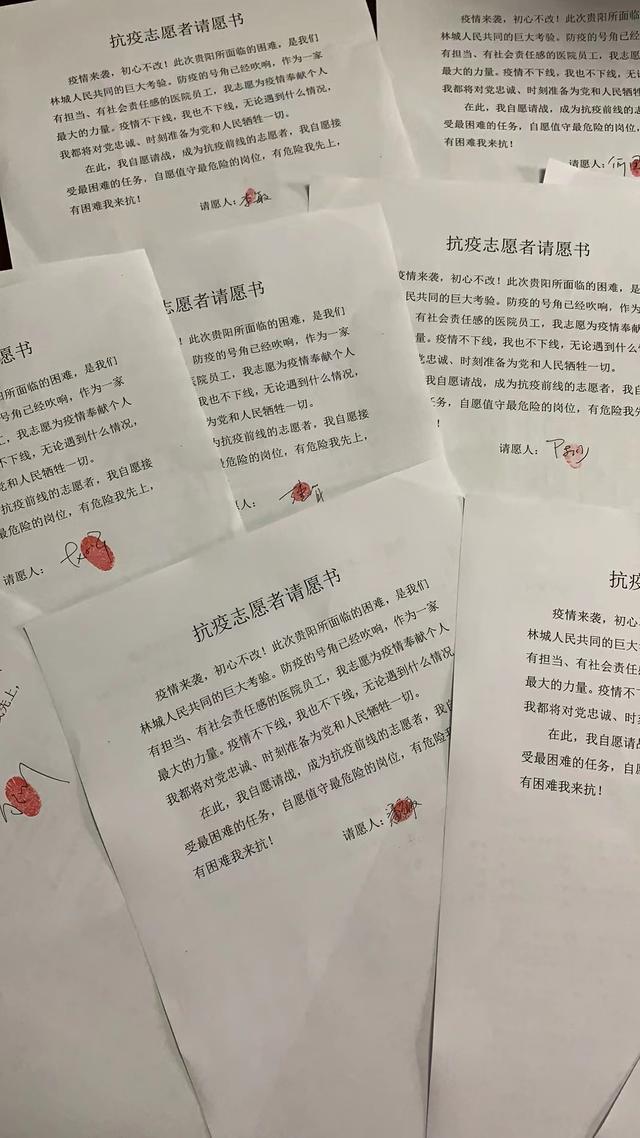 抗疫志愿者请愿书
疫情来袭，初心不改！此次贵阳所面临的困难，是我们
林城人民共同的巨大考验。防疫的号角已经吹响，作为一家
有担当、有社会责任感的医院员工，我志愿为疫情奉献个人
最大的力量。疫情不下线，我也不下线，无论遇到什么情况，
我都将对党忠诚、时刻准备为党和人民牺牲一切。
在此，我自愿请战，成为抗疫前线的志愿者，我自愿接
受最困难的任务，自愿值守最危险的岗位，有危险我先上，
有困难我来抗！
请愿人：李敏
疫情来袭，初心不改！此次贵阳所面临的困
林城人民共同的巨大考验。防疫的号角已经吹响，
有担当、有社会责任感的医院员工，我志愿为疫情
最大的力量。疫情不下线，我也不下线，无论遇到
我都将对党忠诚、时刻准备为党和人民牺牲一切
在此，我自愿请战，成为抗疫前线的志愿者
受最困难的任务，自愿值守最危险的岗位，有危
有困难我来抗！
请愿人：何
抗疫志愿者请愿书
疫情来袭，初心不改！此次贵阳所面临的困难，是
民共同的巨大考验。防疫的号角已经吹响，作
、有社会责任感的医院员工，我志愿为疫情奉
量。疫情不下线，我也不下线，无论遇到什么情
党忠诚、时刻准备为党和人民牺牲一切。
，我自愿请战，成为抗疫前线的志愿者，我自
任务，自愿值守最危险的岗位，有危险我先
！
请愿人：
志愿者请愿书
！此次贵阳所面临的困难，是我们
防疫的号角已经吹响，作为一家
医院员工，我志愿为疫情奉献个人
我也不下线，无论遇到什么情况，
为党和人民牺牲一切。
为抗疫前线的志愿者，我自愿接
最危险的岗位，有危险我先上，
人：
愿书
阳所面临的困难，是我们
号角已经吹响，作为一家
工，我志愿为疫情奉献个人
不下线，无论遇到什么情况，
党和人民牺牲一切。
抗疫前线的志愿者，我自愿接
最危险的岗位，有危险我先上，
请愿人：
抗疫志愿者请愿书
疫情来袭，初心不改！此次贵阳所面临的困难，是我们
林城人民共同的巨大考验。防疫的号角已经吹响，作为一家
有担当、有社会责任感的医院员工，我志愿为疫情奉献个人
最大的力量。疫情不下线，我也不下线，无论遇到什么情况
我都将对党忠诚、时刻准备为党和人民牺牲一切。
在此，我自愿请战，成为抗疫前线的志愿者，我自
受最困难的任务，自愿值守最危险的岗位，有危险我
有困难我来抗！
请愿人：
抗疫
疫情来袭，初心不
林城人民共同的巨大考
有担当、有社会责任感
最大的力量。疫情不下
我都将对党忠诚、时刻
在此，我自愿请战
受最困难的任务，自愿
有困难我来抗！
先上，